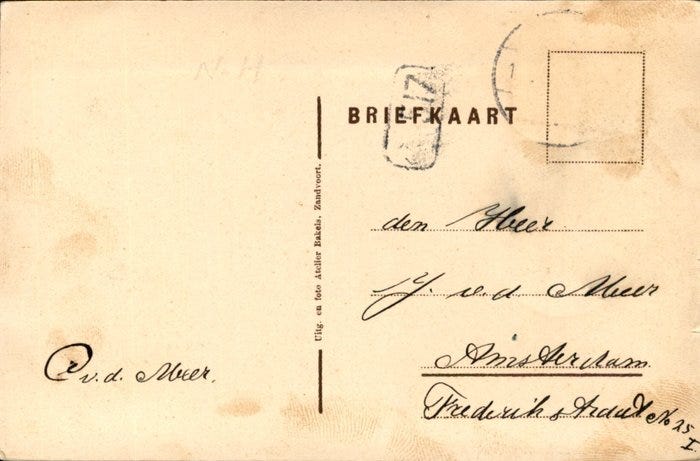 N-H
BRIEFKAART
Uitg. en foto Atelier Bakels, Zandvoort.
den Heer
J. v.d. Meer
Amsterdam
Frederik No 25
I
v.d. Meer.